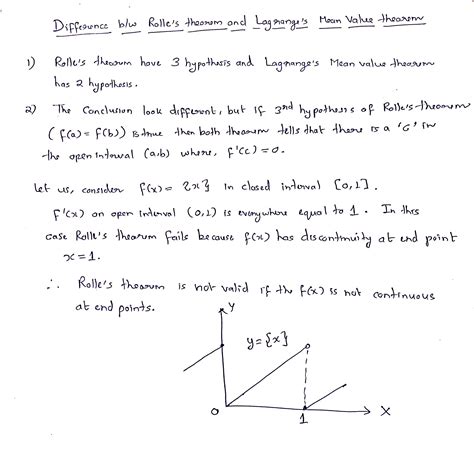 Difference b/w Rolle's theorem and Lagrange's Mean Value theorem
1) Rolle's theorem have 3 hypothesis and Lagrange's Mean value theorem
has 2 hypothesis.
2) The Conclusion look different, but if 3rd hypothesis of Rolle's theorem
(f(a) = f(b)) is true then both theorem tells that there is a 'c' in
the open interval (a,b) where, f'(c) = 0.
Let us, consider f(x) = {x} in closed interval [0,1].
f'(x) on open interval (0,1) is everywhere equal to 1. In this
case Rolle's theorem fails because f(x) has discontinuity at end point
x = 1.
∴ Rolle's theorem is not valid if the f(x) is not continuous
at end points.
Y
y = {x}
0
1
X